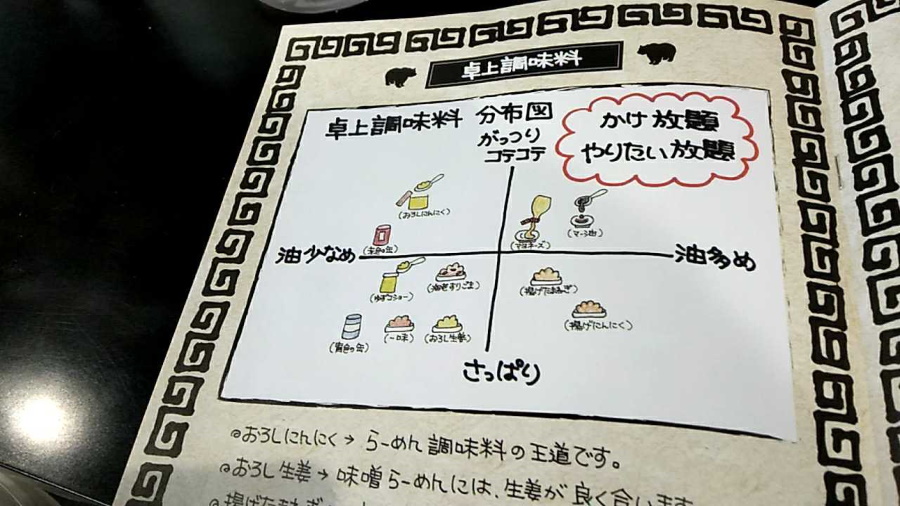 卓上調味料
卓上調味料 分布図
がっつり
コテコテ
かけ放題
やりたい放題
(おろしにんにく)
(マヨネーズ)
(マー油)
(赤色の缶)
油少なめ
油多め
(ゆずコショー)
(揚げたまねぎ)
(揚げにんにく)
(青色の缶)
(一味)
(おろし生姜)
さっぱり
◎おろしにんにく→らーめん調味料の王道です。
◎おろし生姜→味噌らーめんには、生姜が良く合います
◎揚げたまねぎ